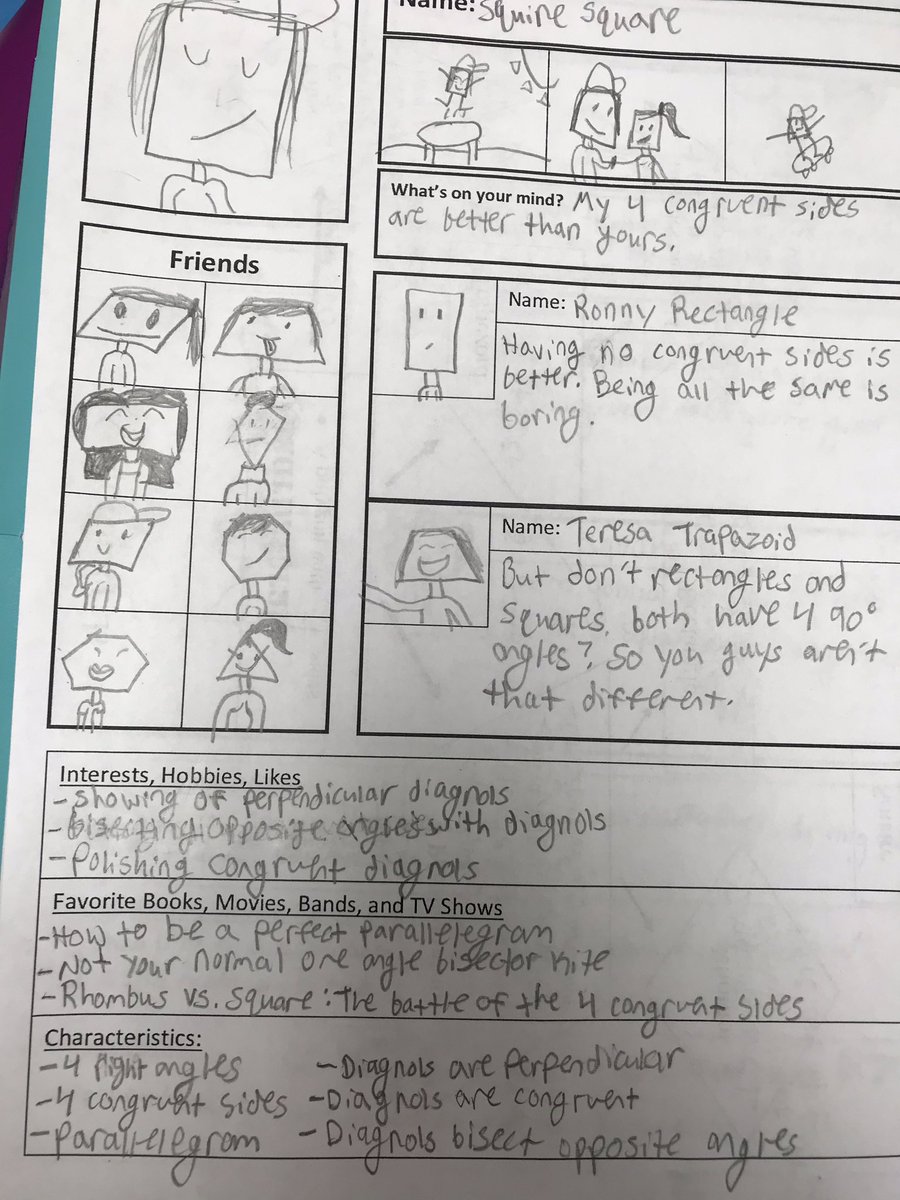 Name: Squire Square
What's on your mind? My 4 congruent sides
are better than yours.
Friends
Name: Ronny Rectangle
Having no congruent sides is
better. Being all the same is
boring.
Name: Teresa Trapazoid
But don't rectangles and
squares, both have 4 90°
angles? So you guys aren't
that different.
Interests, Hobbies, Likes
- Showing of perpendicular diagnols
- Bisecting opposite angles with diagnols
- Polishing congruent diagnals
Favorite Books, Movies, Bands, and TV Shows
- How to be a perfect parallelegram
- Not your normal one angle bisector kite
- Rhombus vs. Square: The battle of the 4 congruent sides
Characteristics:
- 4 right angles - Diagnols are perpendicular
- 4 congruent sides - Diagnols are congruent
- Parallelegram - Diagnols bisect opposite angles